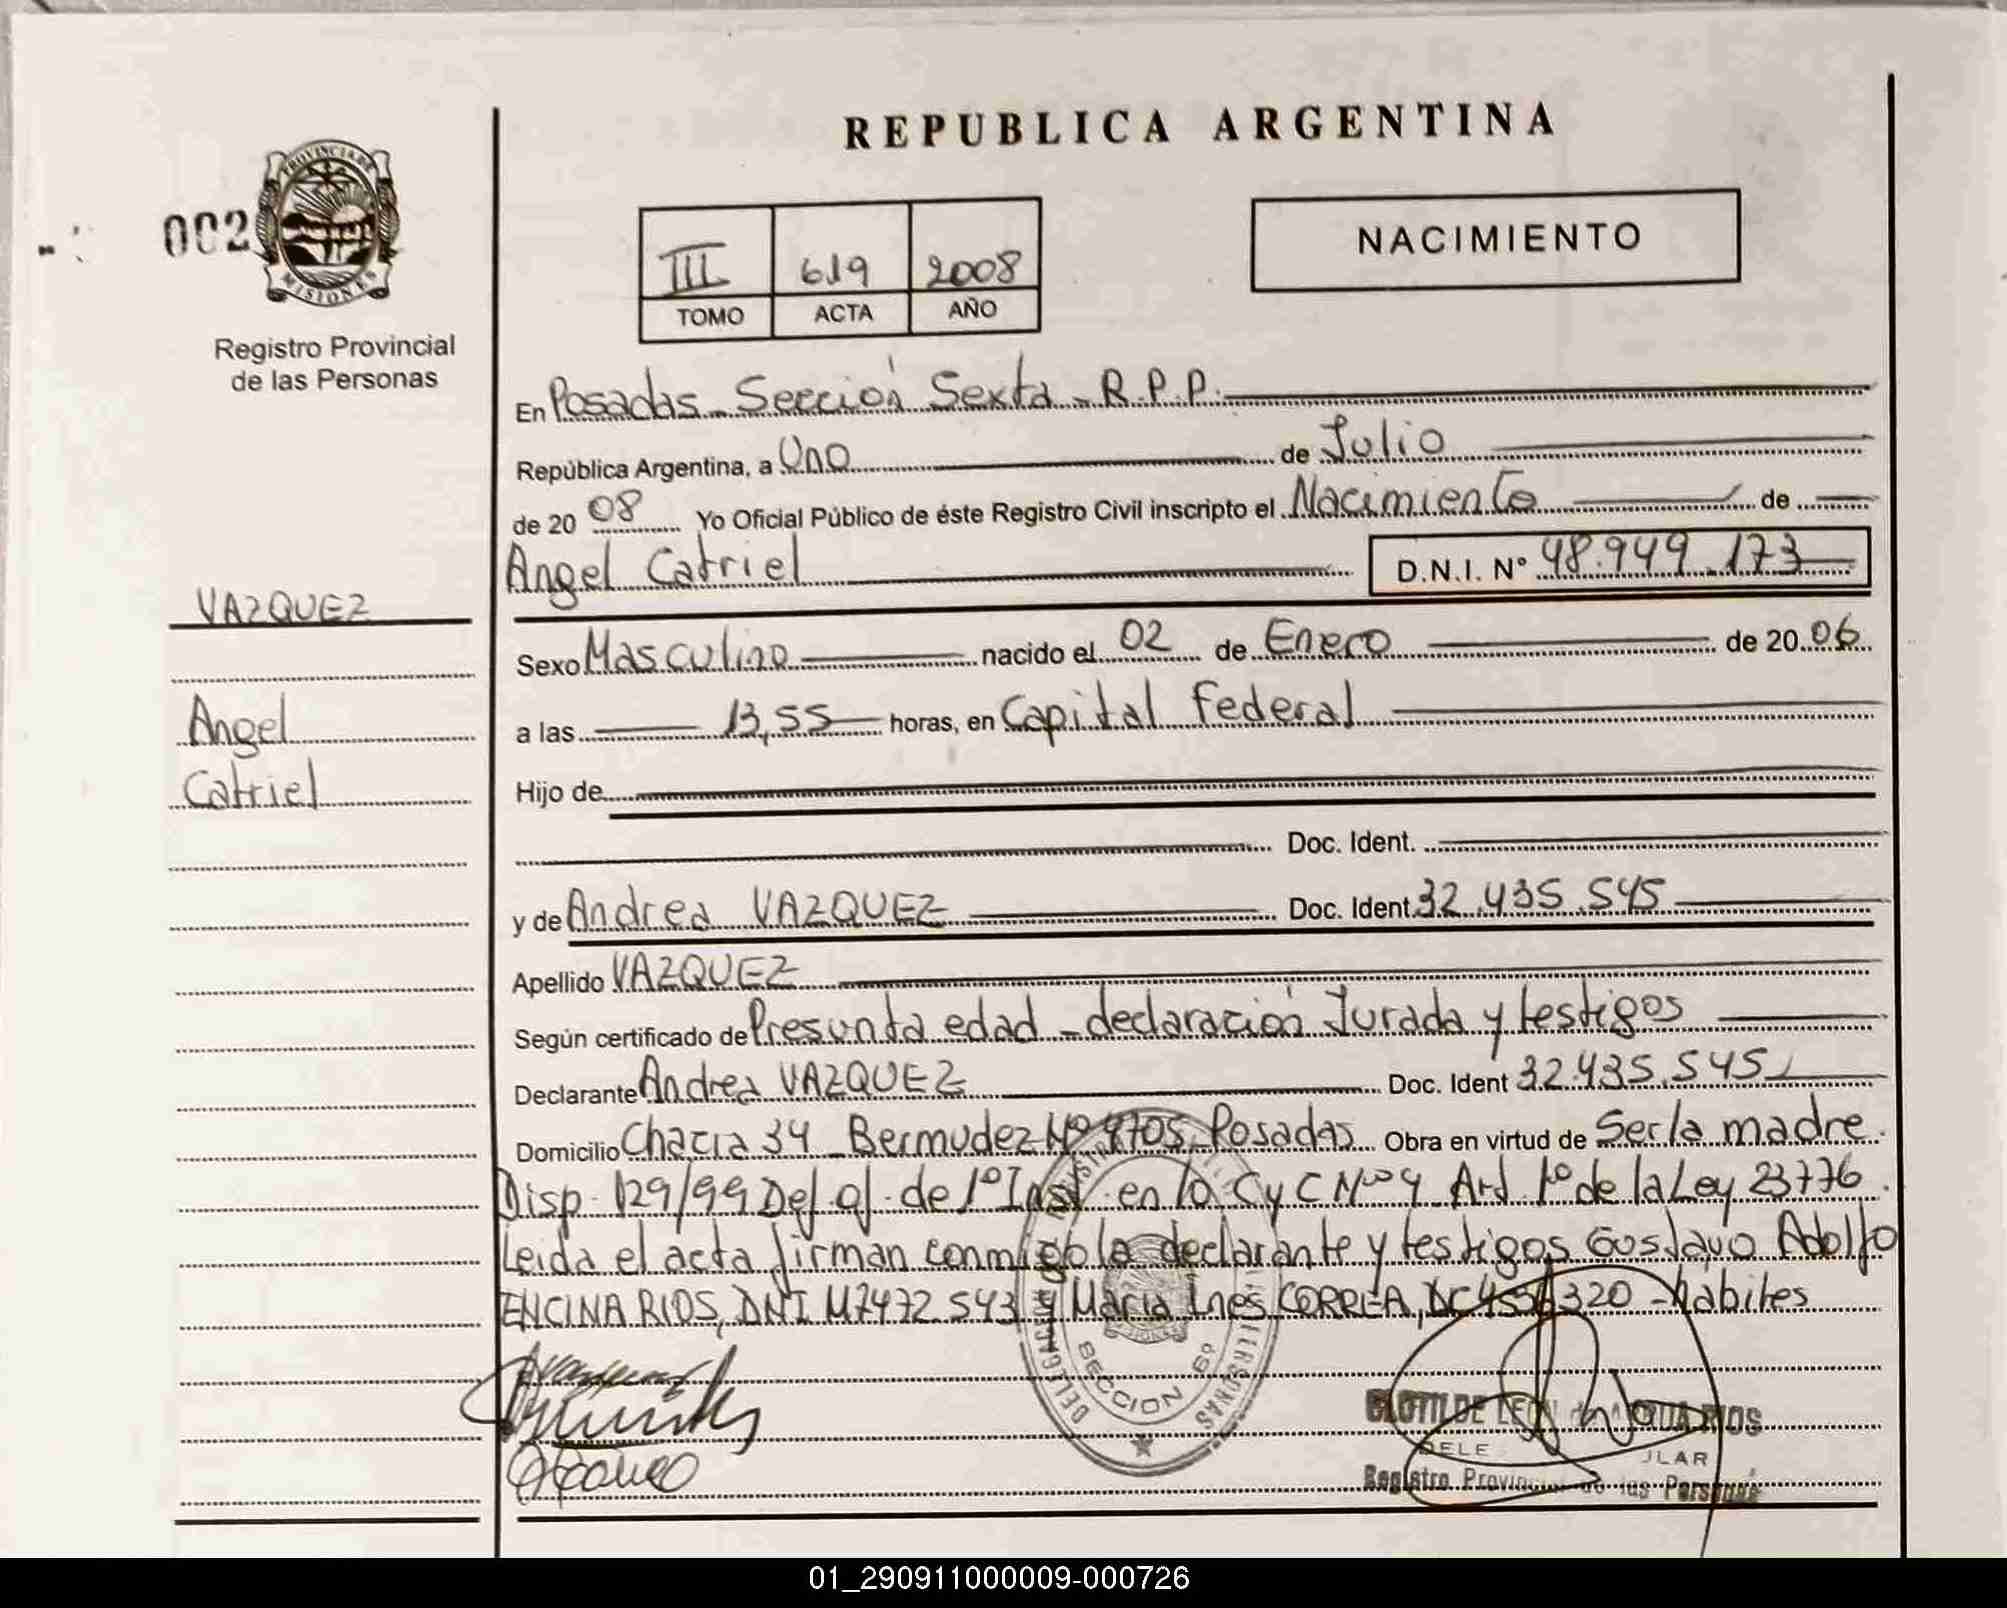 REPUBLICA ARGENTINA
PROVINCIA DE
MISIONES
002
Registro Provincial
de las Personas
III 619 2008
TOMO ACTA AÑO
NACIMIENTO
En Posadas - Sección Sexta - R.P.P.
República Argentina, a Uno de Julio
de 2008 Yo Oficial Público de éste Registro Civil inscripto el Nacimiento de
Angel Catriel D.N.I. Nº 48.949.173
VAZQUEZ
Angel
Catriel
Sexo Masculino nacido el 02 de Enero de 2006
a las 13,55 horas, en Capital Federal
Hijo de
Doc. Ident.
y de Andrea VAZQUEZ Doc. Ident. 32.435.545
Apellido VAZQUEZ
Según certificado de Presunta edad - declaración Jurada y testigos
Declarante Andrea VAZQUEZ Doc. Ident 32.435.545
Domicilio Chacra 34 - Bermudez Nº Posadas Obra en virtud de Ser la madre.
Disp. 129/99 Def. of. de 1º Inst. en lo C y C Nº 4 Art 1º de la Ley 23776.
Leida el acta firman conmigo la declarante y testigos Gustavo Adolfo
ENCINA RIOS, DNI M7472.543 y Maria Ines CORREA, - habiles
SECCION 6º
CLOTILDE LEON de
Registro Provincial de las Personas
01_290911000009-000726